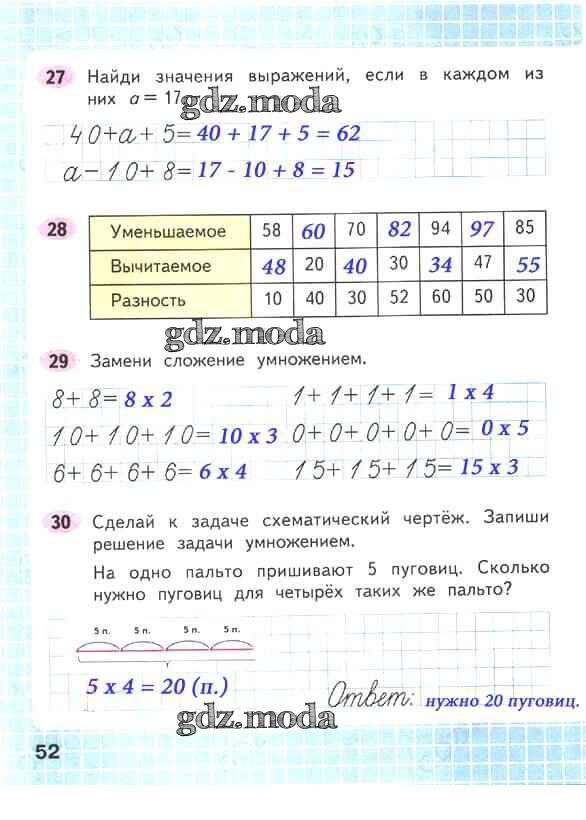 27 Найди значения выражений, если в каждом из
них а = 17.
gdz.moda
40+а+5= 40 + 17 + 5 = 62
а-10+8= 17 - 10 + 8 = 15
28 Уменьшаемое 58 60 70 82 94 97 85
Вычитаемое 48 20 40 30 34 47 55
Разность 10 40 30 52 60 50 30
gdz.moda
29 Замени сложение умножением.
8+8= 8 х 2 1+1+1+1= 1 х 4
10+10+10= 10 х 3 0+0+0+0+0= 0 х 5
6+6+6+6= 6 х 4 15+15+15= 15 х 3
30 Сделай к задаче схематический чертёж. Запиши
решение задачи умножением.
На одно пальто пришивают 5 пуговиц. Сколько
нужно пуговиц для четырёх таких же пальто?
5 п. 5 п. 5 п. 5 п.
5 х 4 = 20 (п.)
Ответ: нужно 20 пуговиц.
gdz.moda
52